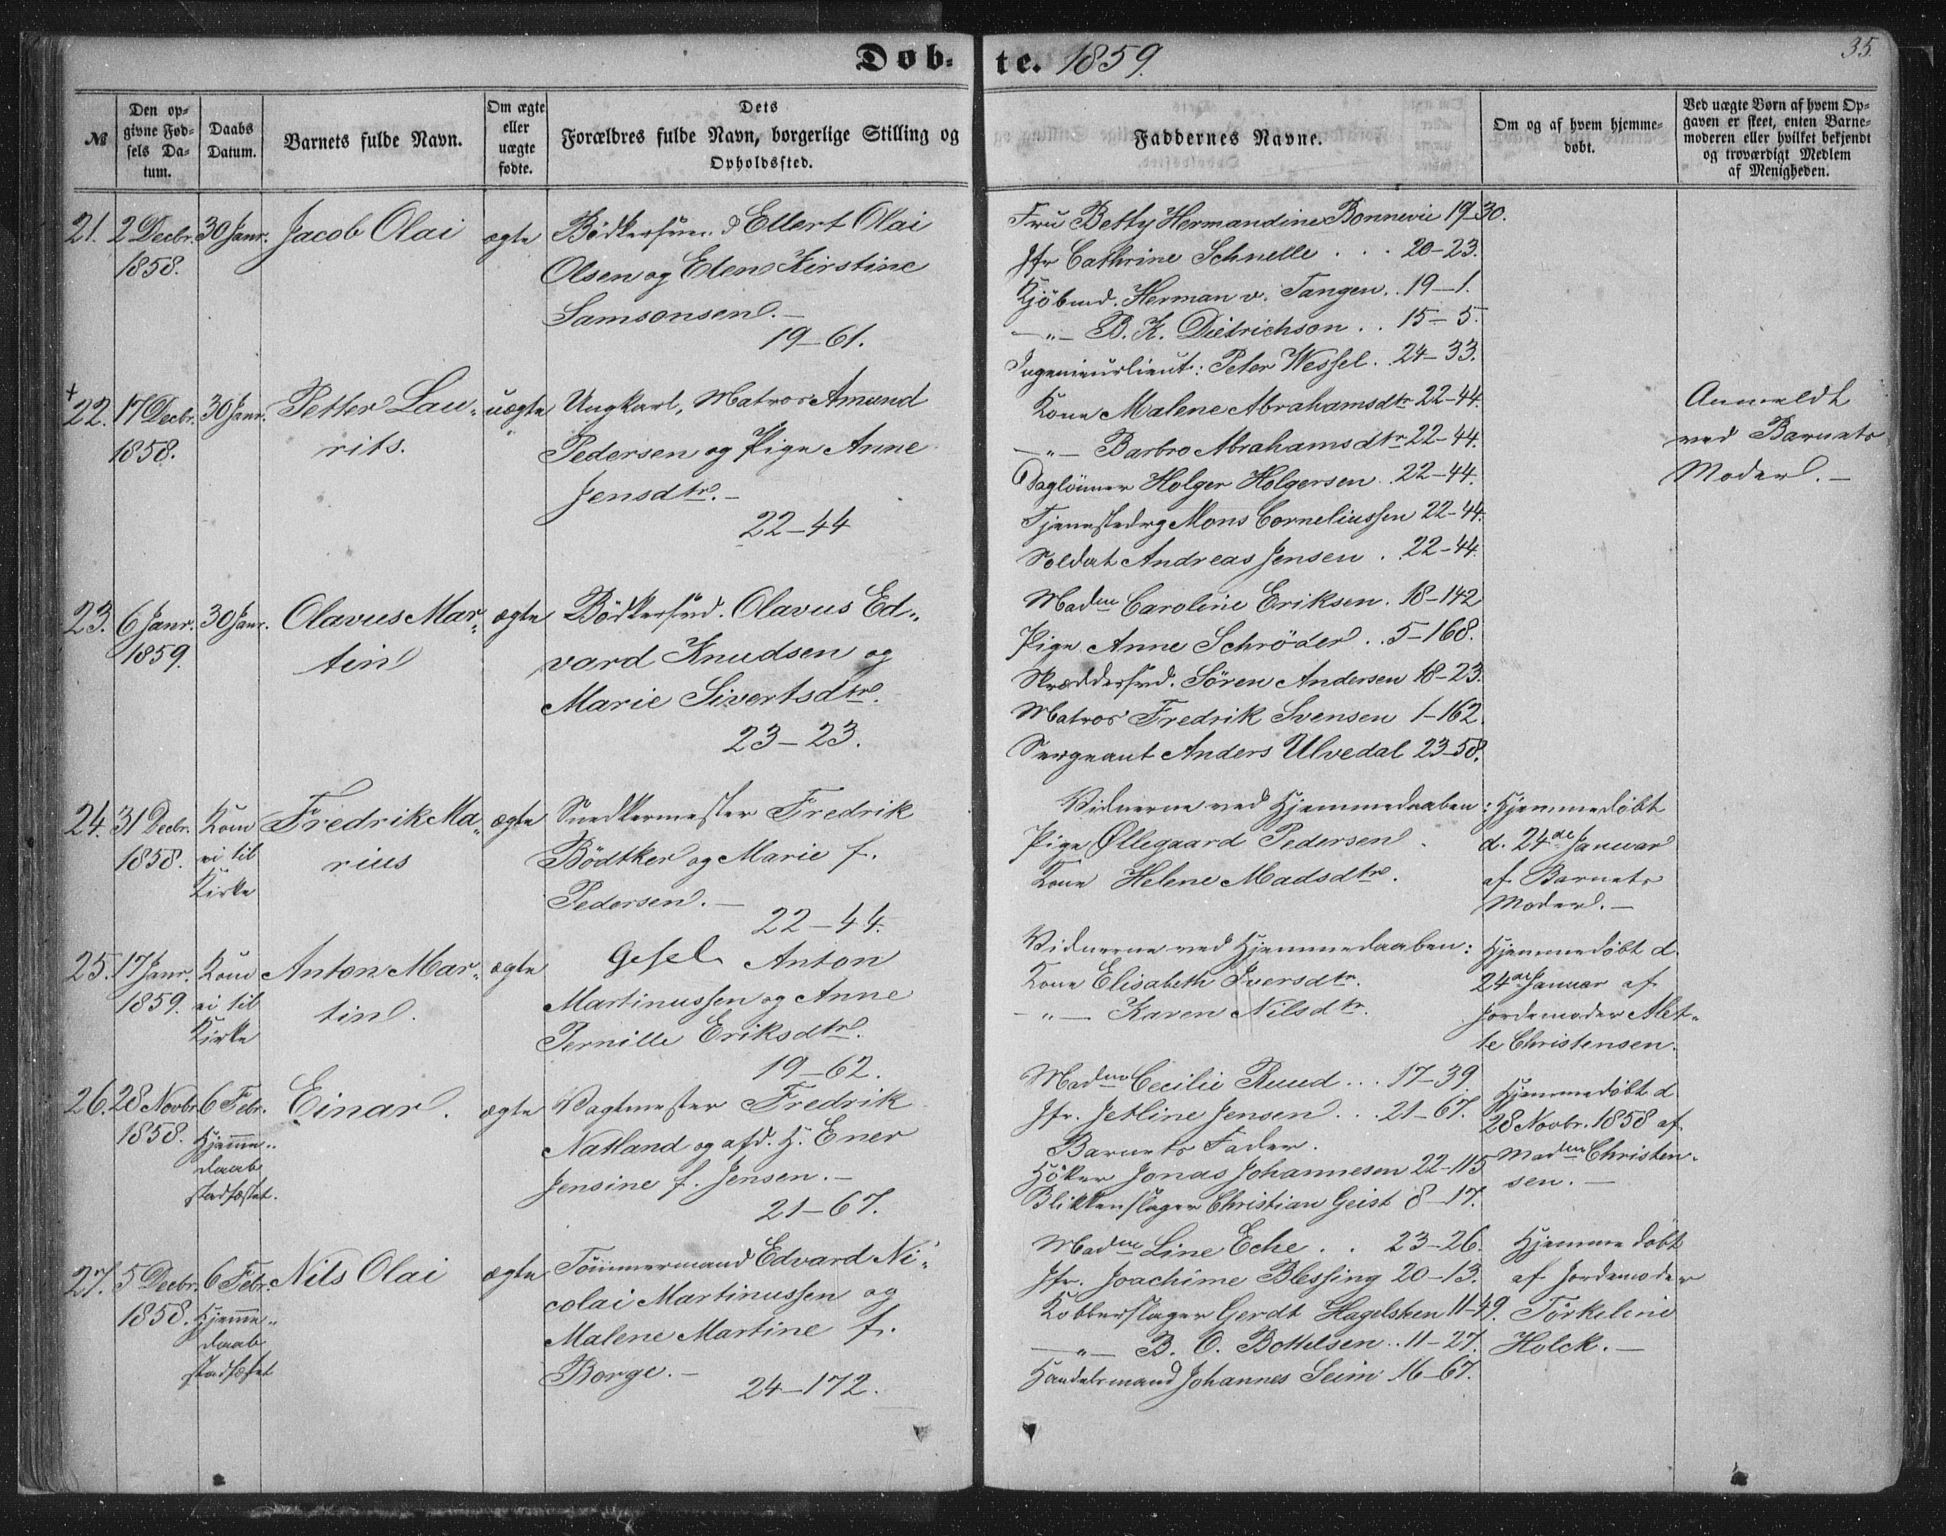 Døb-te. 1859.
35.
№
Den op-
givne Fød-
sels Da-
tum.
Daabs
Datum.
Barnets fulde Navn.
Om ægte
eller
uægte
fødte.
Dets
Forældres fulde Navn, borgerlige Stilling og
Opholdssted.
Faddernes Navne.
Om og af hvem hjemme-
døbt.
Ved uægte Børn af hvem Op-
gaven er skeet, enten Barne-
moderen eller hvilket bekjendt
og troværdigt Medlem
af Menigheden.
21. 2 Decbr. 30 Janr. Jacob Olai ægte
1858.
Bödkersvend Ellert Olai
Olsen og Elen Kirstine
Samsonsen. –
19–61.
Fru Betty Hermandine Bonnevie 19–30.
Jfr Cathrine Schnelle . . . 20–23.
Kjöbmd. Herman v. Tangen. . 19–1.
–„– B. K. Dietrichson . . 15–5.
Ingenieurlieut: Peter Wessel. . 24–33.
+
22. 17 Decbr. 30 Janr. Petter Lau- uægte
1858. rits.
Ungkarl, Matros Amund
Pedersen og Pige Anne
Jensdtr. –
22–44
Kone Malene Abrahamsdtr 22–44.
–„– Barbro Abrahamsdtr 22–44.
Daglönner Holger Holgersen . 22–44.
Tjenestedrg Mons Corneliussen 22–44.
Soldat Andreas Jensen . 22–44.
Anmeldt
ved Barnets
Moder. –
23. 6 Janr. 30 Janr. Olavus Mar- ægte
1859. tin
Bödkersvd. Olavus Ed-
vard Knudsen og
Marie Sivertsdtr.
23–23.
Madme Caroline Eriksen . 18–142
Pige Anne Schröder . . 5–168.
Skræddersvd. Sören Andersen 18–23.
Matros Fredrik Svensen 1–162.
Sergeant Anders Ulvedal 23–58.
24. 31 Decbr. Kom Fredrik Ma- ægte
1858. ei til rius
Kirke
Snedkermester Fredrik
Bödtker og Marie f.
Pedersen. –
22–44.
Vidnerne ved Hjemmedaaben:
Pige Øllegaard Pedersen .
Kone Helene Madsdtr.
Hjemmedöbt
d. 24de Januar
af Barnets
Moder. –
25. 17 Janr. Kom Anton Mar- ægte
1859. ei til tin.
Kirke
Gesel Anton
Martinussen og Anne
Pernille Eriksdtr.
19–62.
Vidnerne ved Hjemmedaaben:
Kone Elisabeth Iversdtr.
–„– Karen Nilsdtr.
Hjemmedöbt d.
24de Januar af
Jordemoder Alet-
te Christensen.
26. 28 Novbr. 6 Febr. Einar. ægte
1858. Hjemme-
daab
stadfæstet.
Vagtmester Fredrik
Natland og afd. H. Ener
Jensine f. Jensen. –
21–67.
Madme Cecilie Ruud . . . 17–39.
Jfr. Jetline Jensen . . . 21–67.
Barnets Fader.
Höker Jonas Johannesen 22–115
Blikkenslager Christian Geist 8–17.
Hjemmedöbt d
28 Novbr. 1858 af
Madme Christen-
sen. –
27. 5 Decbr. 6 Febr. Nils Olai ægte
1858. Hjemme-
daab
stadfæstet
Tömmermand Edvard Ni-
colai Martinussen og
Malene Martine f.
Borge. –
24–172.
Madme Line Eche . . 23–26.
Jfr. Joachime Blessing 20–13.
Kobberslager Gerdt Hagelsteen 11–49.
–„– B. O. Bottelsen . . 11–27.
Handelsmand Johannes Seim 16–67.
Hjemmedöbt
af Jordemoder
Törkeline
Holck. –